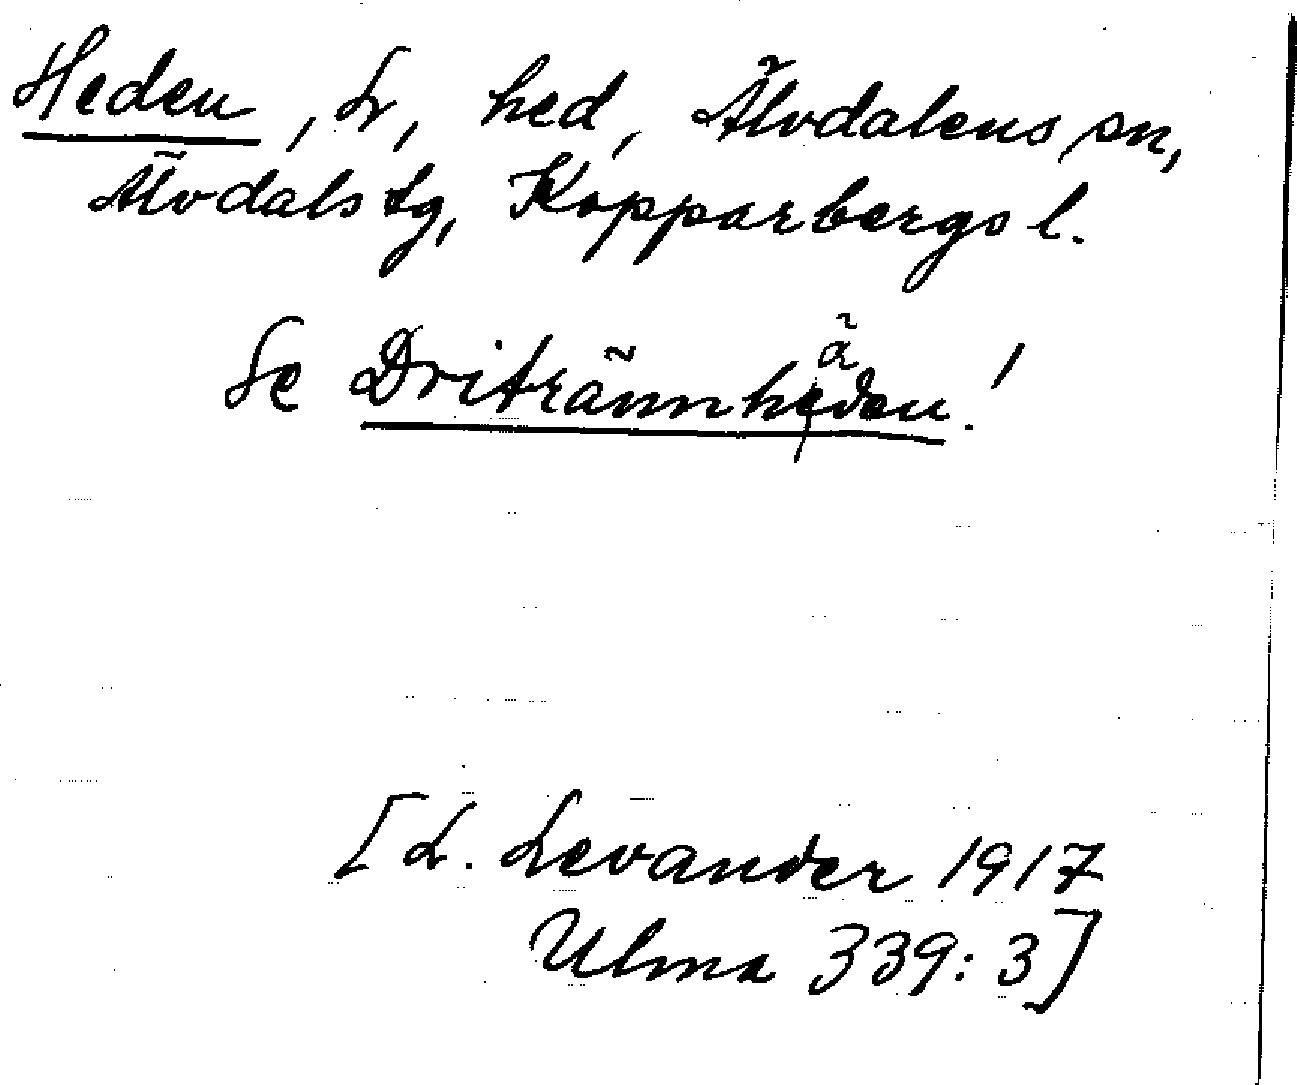 Heden, Lr, hed, Älvdalens sn,
Älvdals tg, Kopparbergs l.
Se Dritrännheden!
ä
[L. Levander 1917
Ulma 339:3]